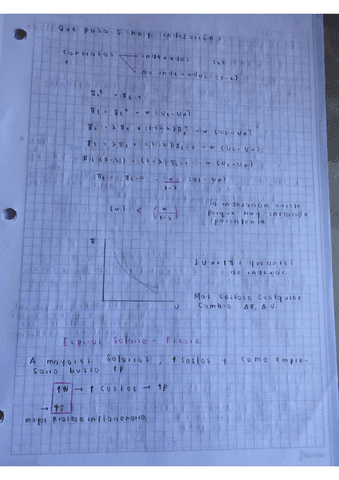 Qué pasa si hay indización?
Contratos indexados (λ)
no indexados (1-λ)
π_t^e = π_{t-1}
π_t = π_t^e - α (U_t - U_n)
π_t = λ π_t + (1-λ) π_t^e - α (U_t - U_n)
π_t = λ π_t + (1-λ) π_{t-1} - α (U_t - U_n)
π_t (1-λ) = (1-λ) π_{t-1} - α (U_t - U_n)
π_t = π_{t-1} - α/(1-λ) (U_t - U_n)
(α) < (α/(1-λ))
la indexación existe
porque hay inflación
persistente
π
U
↓U → ↑π que antes
de indexar
Más costoso cualquier
cambio Δπ, ΔU
Espiral Salario - Precio
A mayores salarios, ↑ costos y como empre-
sario busco ↑P
↑W → ↑ costos → ↑P
→ ↑π
mayor proceso inflacionario